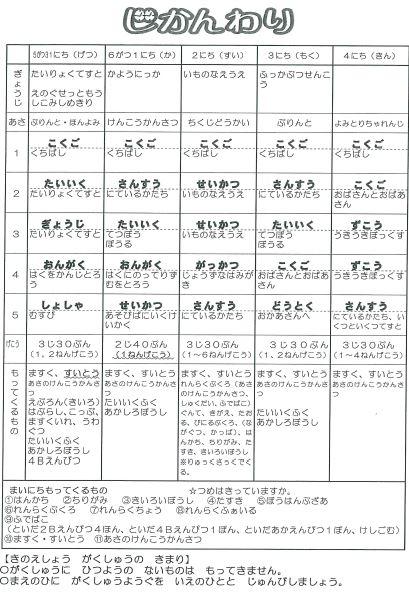 じかんわり
5がつ31にち(げつ) 6がつ1にち(か) 2にち(すい) 3にち(もく) 4にち(きん)
ぎょうじ
たいりょくてすと
えのぐせっともうしこみしめきり
かようにっか
いものなえうえ
ふっかぶつせんこう
あさ ぷりんと・ほんよみ けんこうかんさつ ちくじどうかい ぷりんと よみとりちゃれんじ
1 こくご こくご こくご こくご こくご
くちばし くちばし くちばし くちばし くちばし
2 たいいく さんすう せいかつ さんすう こくご
たいりょくてすと にているかたち いものなえうえ にているかたち おばさんとおばあさん
3 ぎょうじ たいいく せいかつ たいいく ずこう
たいりょくてすと てつぼう ぼうる いものなえうえ てつぼう ぼうる うきうきぼっくす
4 おんがく おんがく がっかつ こくご ずこう
はくをかんじとろう はくにのってりずむをとろう じょうずなはみがき おばさんとおばあさん うきうきぼっくす
5 しょしゃ せいかつ さんすう どうとく さんすう
むすび あそびばにいくけいかく にているかたち おかあさんへ にているかたち、いくつといくつてすと
げこう 3じ30ぷん 2じ40ぷん 3じ30ぷん 3じ30ぷん 3じ30ぷん
(1、2ねんげこう) (1ねんげこう) (1~6ねんげこう) (1、2ねんげこう) (1~4ねんげこう)
もってくるもの
ますく、すいとう
あさのけんこうかんさつ
えぷろん(きいろ)
はぶらし、こっぷ、
ますくいれ、うわぐつ
たいいくふく
あかしろぼうし
4Bえんぴつ
ますく、すいとう
あさのけんこうかんさつ
たいいくふく
あかしろぼうし
ますく、すいとう
れんらくぶくろ(あさのけんこうかんさつ、しゅくだい、ふでばこ)
ぐんて、きがえ、たおる、びにるぶくろ、(ながぐつ、かっぱ)、はんかち、ちりがみ、たすき、きいろいぼうし
※りゅっくさっくでくる。
ますく、すいとう
あさのけんこうかんさつ
たいいくふく
あかしろぼうし
ますく、すいとう
あさのけんこうかんさつ
まいにちもってくるもの ☆つめはきっていますか。
①はんかち ②ちりがみ ③きいろいぼうし ④たすき ⑤ぼうはんぶざあ
⑥れんらくぶくろ ⑦れんらくちょう ⑧れんらくふぁいる
⑨ふでばこ
(といだ2Bえんぴつ4ほん、といだ4Bえんぴつ1ぽん、といだあかえんぴつ1ぽん、けしごむ)
⑩ますく・すいとう ⑪あさのけんこうかんさつ
【きのえしょう がくしゅうの きまり】
〇がくしゅうに ひつようの ないものは もってきません。
〇まえのひに がくしゅうようぐを いえのひとと じゅんびしましょう。